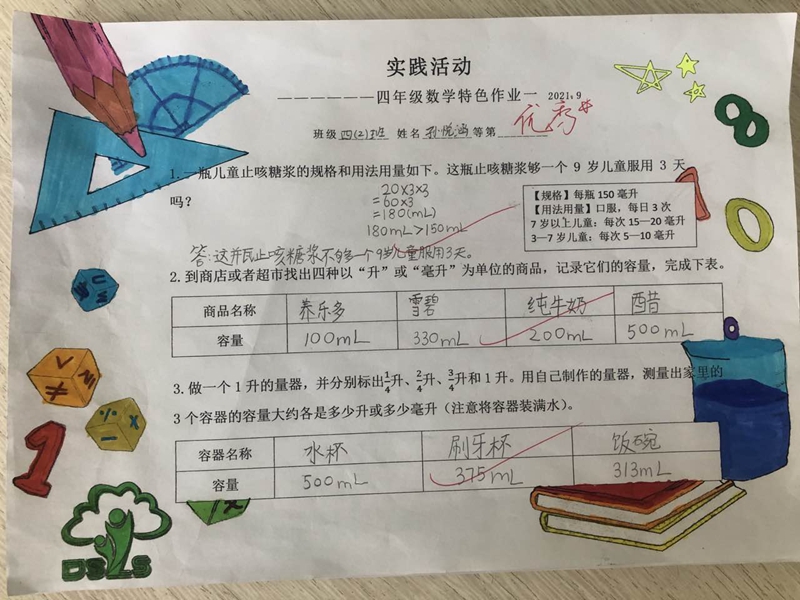 实践活动
——————四年级数学特色作业一 2021.9
班级 四(2)班 姓名 孙悦涵 等第 优秀
1.一瓶儿童止咳糖浆的规格和用法用量如下。这瓶止咳糖浆够一个 9 岁儿童服用 3 天
吗?
20×3×3
=60×3
=180(mL)
180mL>150mL
【规格】每瓶 150 毫升
【用法用量】口服,每日 3 次
7 岁以上儿童:每次 15—20 毫升
3—7 岁儿童:每次 5—10 毫升
答:这并瓦止咳糖浆不够一个9岁儿童服用3天。
2.到商店或者超市找出四种以“升”或“毫升”为单位的商品,记录它们的容量,完成下表。
商品名称 养乐多 雪碧 纯牛奶 酉昔
容量 100mL 330mL 200mL 500mL
3.做一个 1 升的量器,并分别标出1/4升、2/4升、3/4升和 1 升。用自己制作的量器,测量出家里的
3 个容器的容量大约各是多少升或多少毫升(注意将容器装满水)。
容器名称 水杯 刷牙杯 饭碗
容量 500mL 375mL 313mL
DSLS